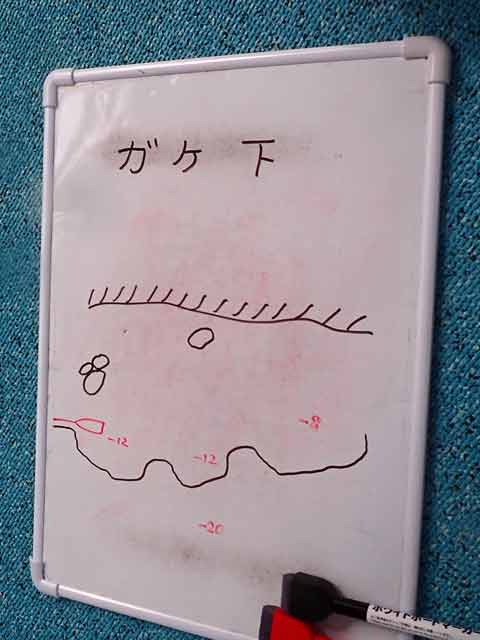 ガケ下
-8
-12
-12
-20
ホワイトボードマーカー